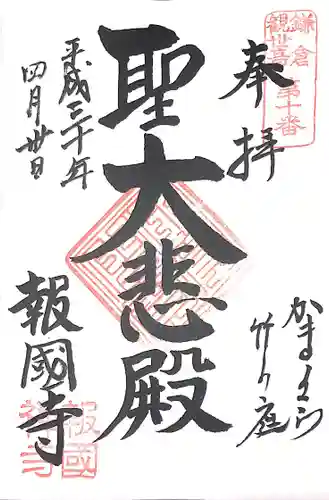 鎌倉
観世音
第十番
奉拝
かまくら
竹の庭
聖大悲殿
平成三十年
四月卅日
報國寺
報國
禅寺